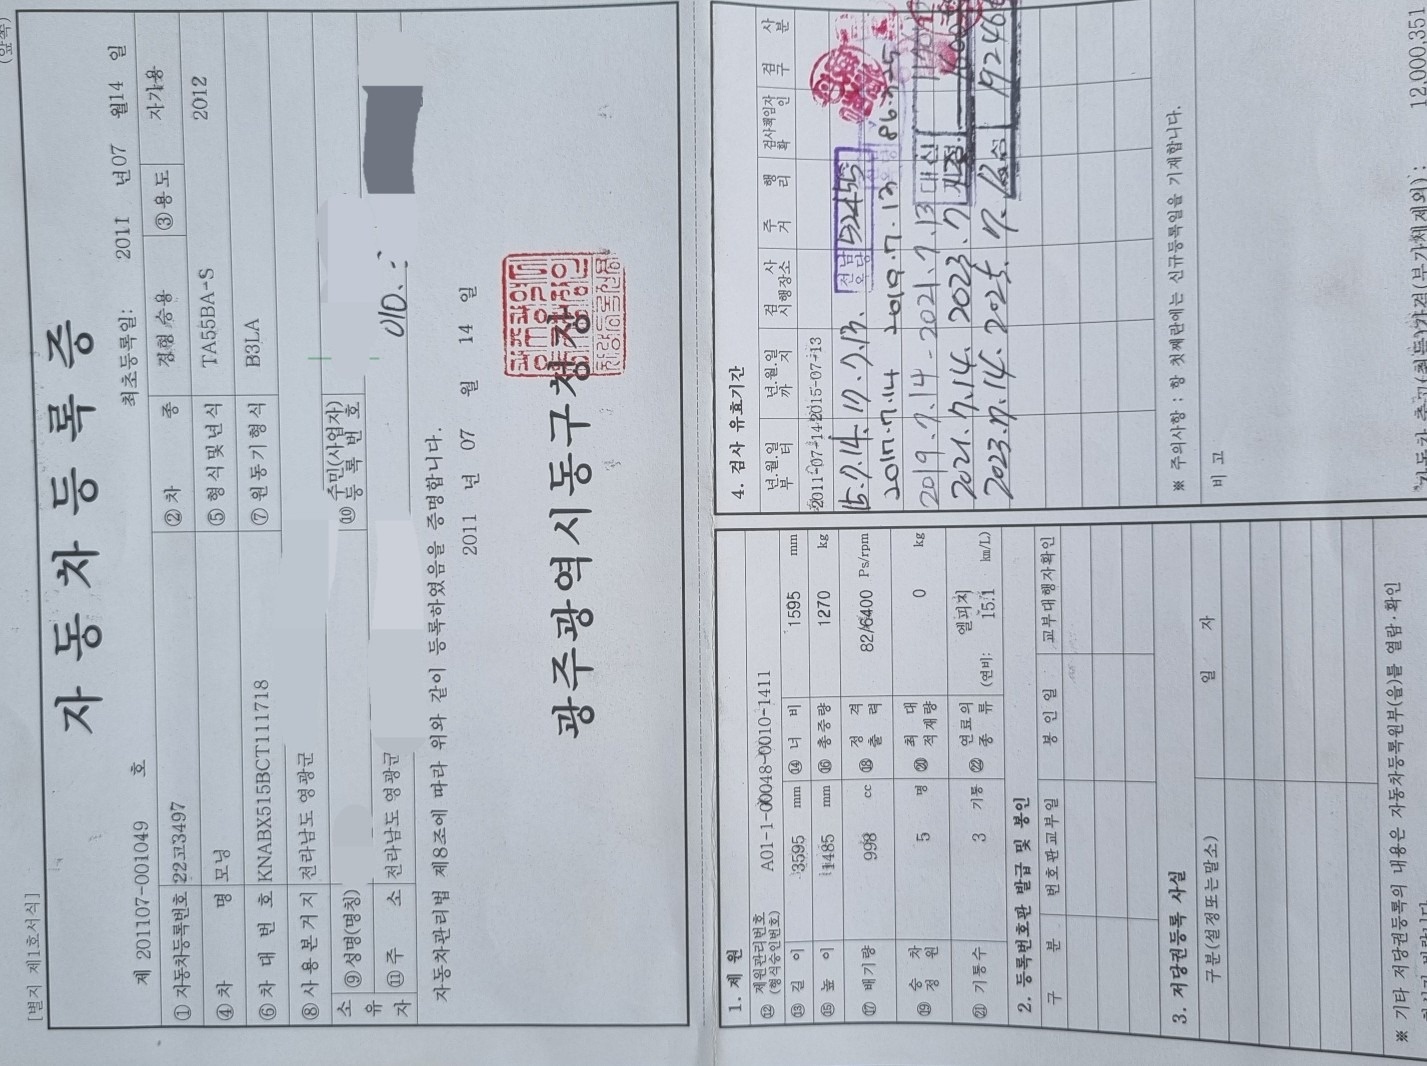 [별지 제1호서식]
(앞쪽)
자 동 차 등 록 증
제 201107-001049 호
최초등록일: 2011 년 07 월 14 일
① 자동차등록번호 22고3497 ② 차 종 경형 승용 ③ 용도 자가용
④ 차 명 모닝 ⑤ 형식및년식 TA55BA-S 2012
⑥ 차 대 번 호 KNABX515BCT111718 ⑦ 원동기형식 B3LA
⑧ 사 용 본 거 지 전라남도 영광군
소유자 ⑨ 성명(명칭) ⑩ 주민(사업자)등 록 번 호
⑪ 주 소 전라남도 영광군 010.
자동차관리법 제8조에 따라 위와 같이 등록하였음을 증명합니다.
2011 년 07 월 14 일
광주광역시동구청장
1. 제 원
⑫ 제원관리번호 (형식승인번호) A01-1-00048-0010-1411
⑬ 길 이 3595 mm ⑭ 너 비 1595 mm
⑮ 높 이 1485 mm ⑯ 총중량 1270 kg
⑰ 배기량 998 cc ⑱ 정 격 출 력 82/6400 Ps/rpm
⑲ 승 차 정 원 5 명 ⑳ 최 대 적재량 0 kg
㉑ 기통수 3 기통 ㉒ 연료의 종 류 엘피지 (연비: 15.1 km/L)
2. 등록번호판 발급 및 봉인
구 분 번호판교부일 봉 인 일 교부대행자확인
3. 저당권등록 사실
구분(설정또는말소) 일 자
※ 기타 저당권등록의 내용은 자동차등록원부(을)를 열람·확인
4. 검사 유효기간
년.월.일 부 터 년.월.일 까 지 검 사 시행장소 주 행 거 리 검사책임자 확 인 검 사 구 분
2011-07-14 2015-07-13
15.7.14. 17.7.13. 전남 52455
2017.7.14 2019.7.13 86725
2019.7.14 - 2021.7.13 대신
2021.7.14. 2023.7 지정
2023.7.14. 2025.7. 192468
※ 주의사항 : 항 첫째란에는 신규등록일을 기재합니다.
비 고
자동차 출고(취득)가격(부가세제외) : 12,000,351